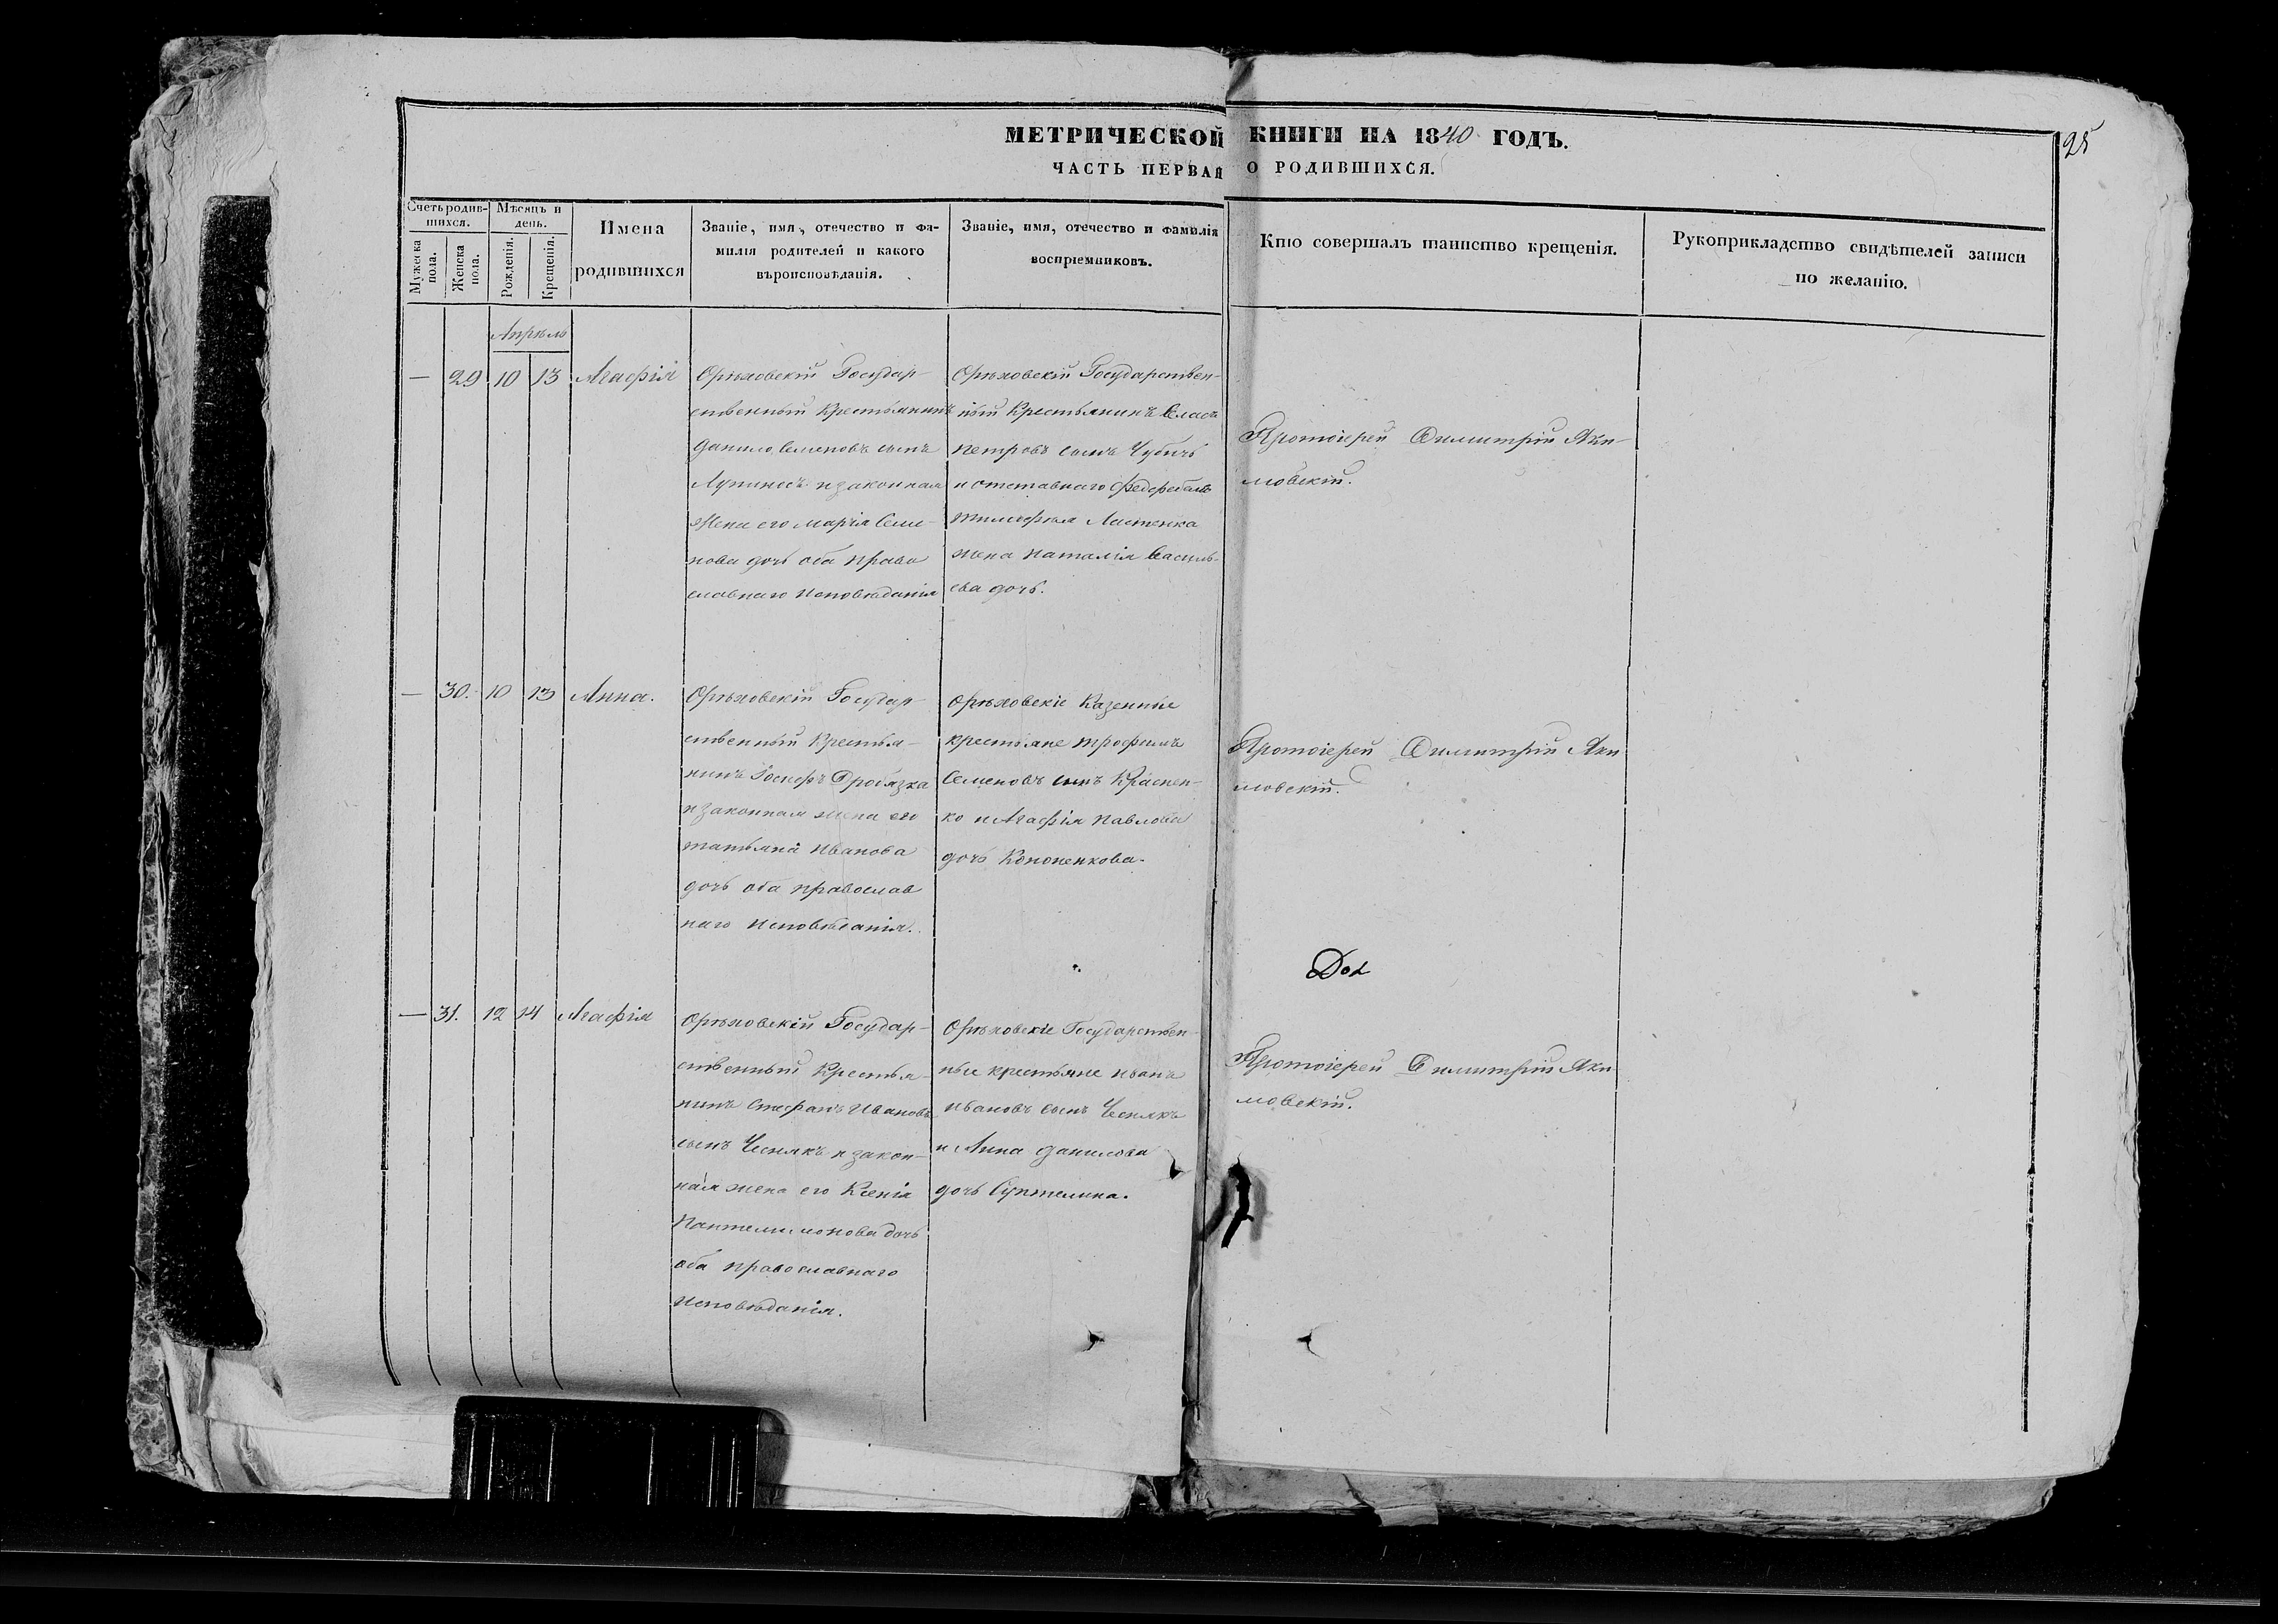 МЕТРИЧЕСКОЙ КНИГИ НА 1840 ГОДЪ.
ЧАСТЬ ПЕРВАЯ О РОДИВШИХСЯ.
25
Счетъ родив-
шихся.
Мужеска
пола.
Женска
пола.
Мѣсяцъ и
день.
Рожденія.
Крещенія.
Имена
родившихся
Званіе, имя, отечество и фа-
милія родителей и какого
вѣроисповѣданія.
Званіе, имя, отечество и фамилія
воспріемниковъ.
Кто совершалъ таинство крещенія.
Рукоприкладство свидѣтелей записи
по желанію.
Апрѣль
— 29 10 13 Агафія
Орѣховскій Государ-
ственный Крестьянинъ
Данило Семеновъ сынъ
Лупиносъ и законная
Жена его Марія Семе-
нова дочь оба право
славнаго Исповѣданія
Орѣховскій Государствен-
ный Крестьянинъ Власъ
Петровъ сынъ Чубичъ
и отставнаго
жена Наталія Василь-
ева дочь.
Протоіерей Димитрій Яки-
мовскій.
— 30. 10 13 Анна.
Орѣховскій Государ-
ственный Крестья-
нинъ Іосифъ Дробязка
и законная жена его
Татьяна Иванова
дочь оба православ
наго Исповѣданія.
Орѣховскіе Казенные
крестьяне Трофимъ
Семеновъ сынъ Краснен-
ко и Агафія Павлова
дочь Кононенкова.
Протоіерей Димитрій Яки
мовскій.
— 31. 12 14 Агафія
Орѣховскій Государ-
ственный Крестья-
нинъ Стефанъ Ивановъ
сынъ Чеснякъ и закон-
ная жена его Ксенія
Пантелимонова дочь
оба православнаго
Исповѣданія.
Орѣховскіе Государствен-
ные крестьяне Иванъ
Ивановъ сынъ Чеснякъ
и Анна Данилова
дочь
Протоіерей Димитрій Яки
мовскій.